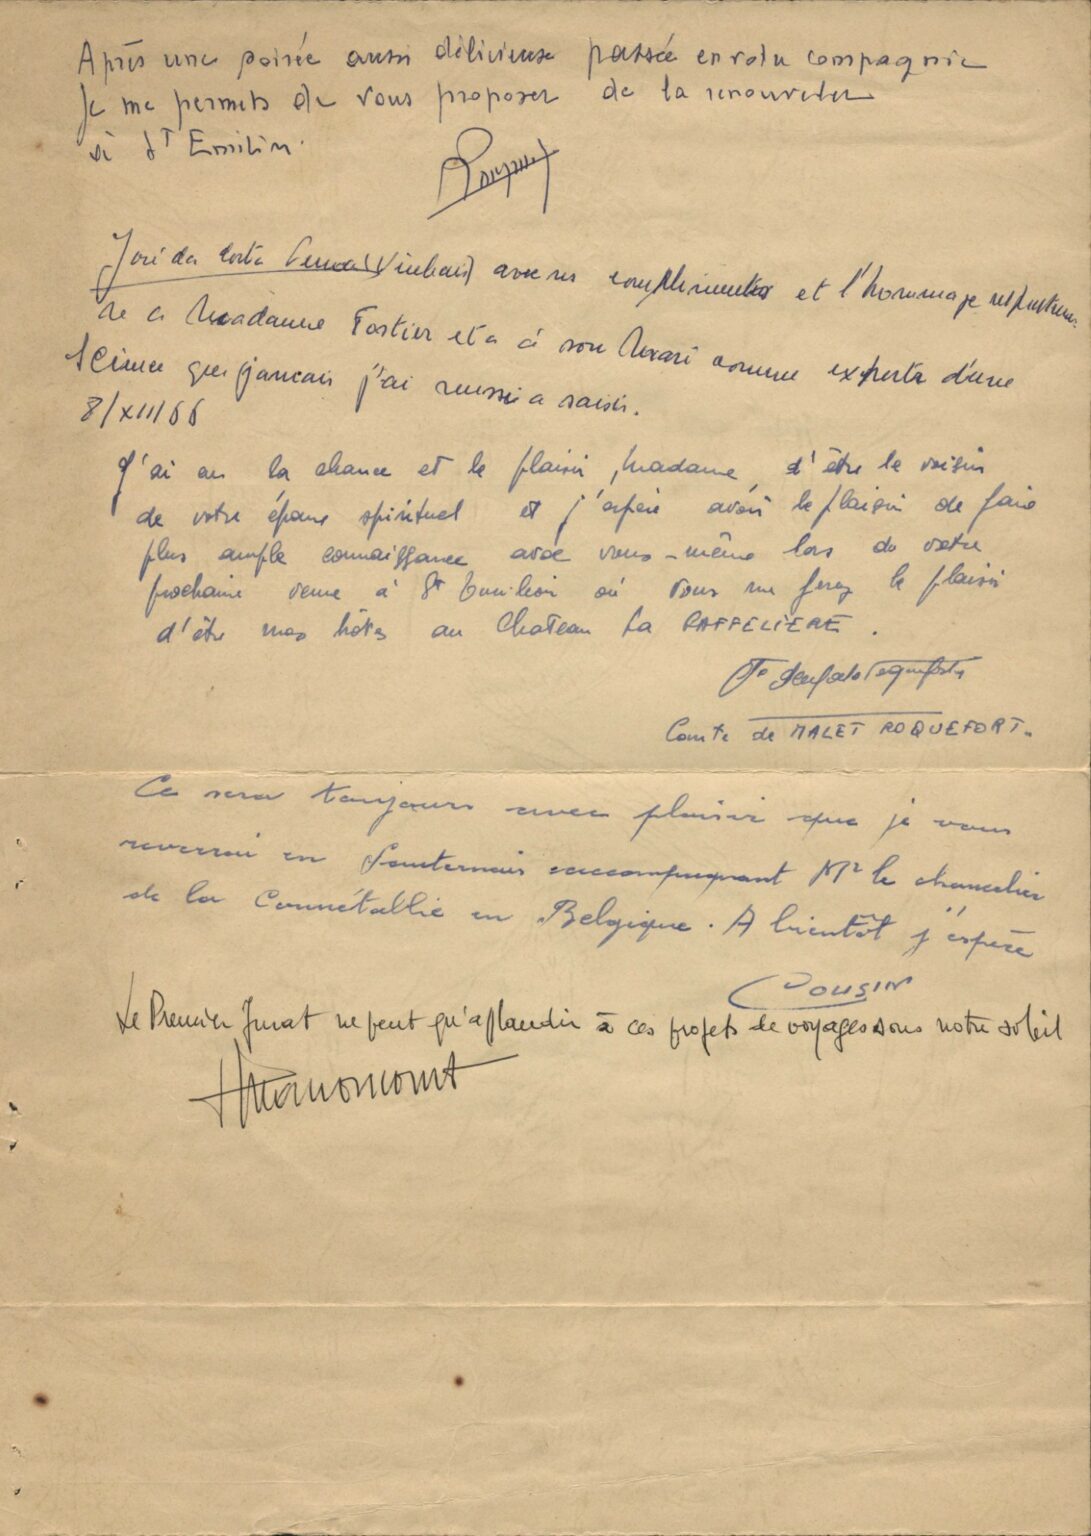 Après une soirée aussi délicieuse passée en votre compagnie
Je me permets de vous proposer de la renouveler
à St Emilion.
José da Costa (Vinhais) avec ses compliments et l'hommage respectueux
à Madame Fortier et a à son Mari comme experts d'une
Science que jamais j'ai reussi a saisir.
8/XII/66
J'ai eu la chance et le plaisir, Madame, d'être le voisin
de votre époux spirituel et j'espère avoir le plaisir de faire
plus ample connaissance avec vous-même lors de votre
prochaine venue à St Emilion où vous me ferez le plaisir
d'être mes hôtes au Chateau La GAFFELIERE.
Comte de MALET ROQUEFORT.
Ce sera toujours avec plaisir que je vous
reverrai en Sauternais accompagnant Mr le chancelier
de la Connétablie en Belgique. A bientôt j'espère
COUSIN
Le Premier Jurat ne peut qu'applaudir à ces projets de voyages sous notre soleil